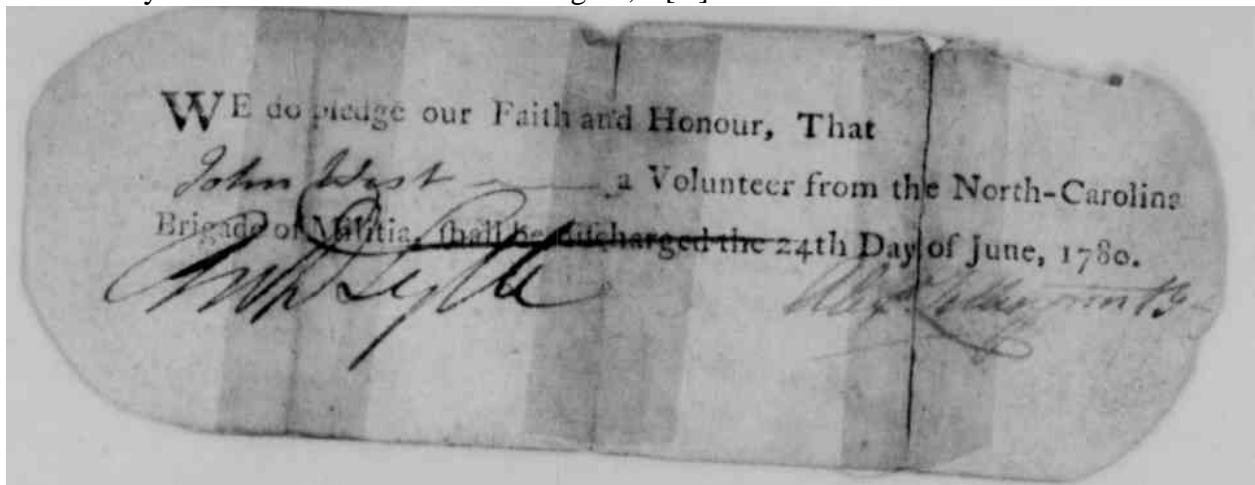 WE do pledge our Faith and Honour, That
John West a Volunteer from the North-Carolina
Brigade of Militia, shall be discharged the 24th Day of June, 1780.
Lytle